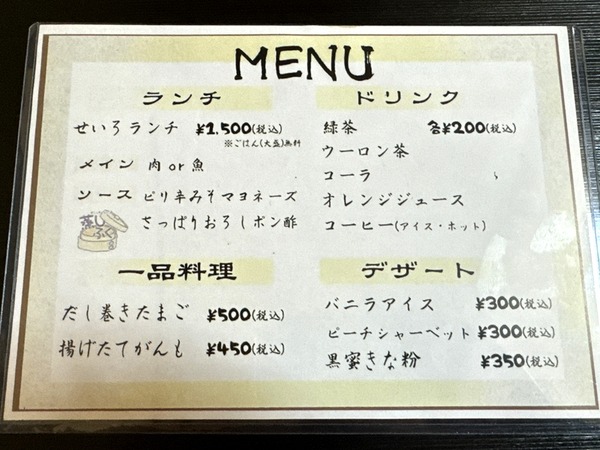 MENU
ランチ
せいろランチ ¥1,500(税込)
※ごはん(大盛)無料
メイン 肉or魚
ソース ピリ辛みそマヨネーズ
さっぱりおろしポン酢
一品料理
だし巻きたまご ¥500(税込)
揚げたてがんも ¥450(税込)
ドリンク
緑茶 各¥200(税込)
ウーロン茶
コーラ
オレンジジュース
コーヒー(アイス・ホット)
デザート
バニラアイス ¥300(税込)
ピーチシャーベット ¥300(税込)
黒蜜きな粉 ¥350(税込)